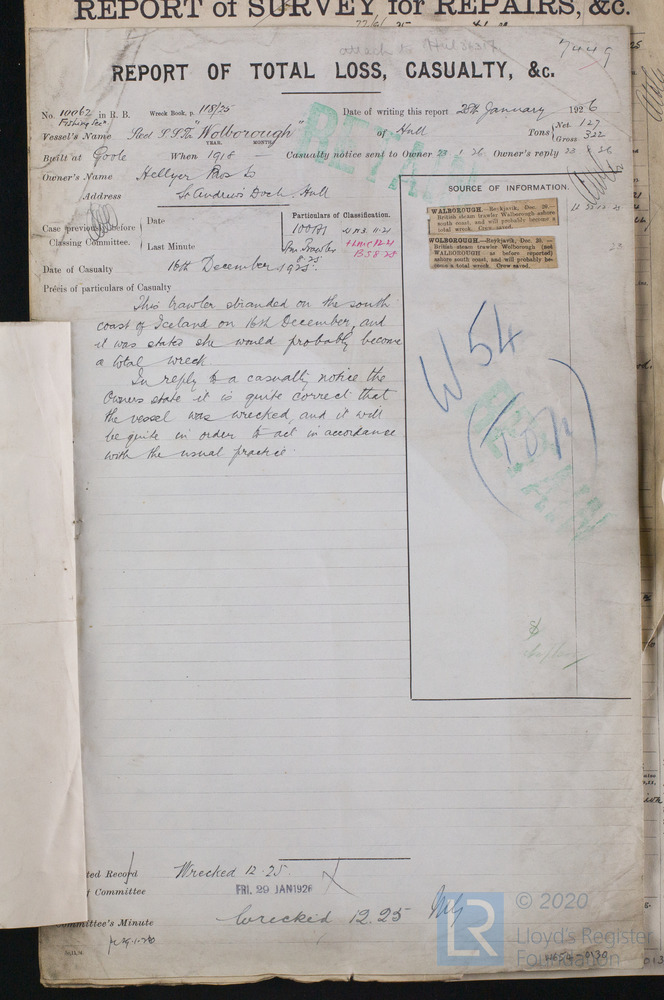 REPORT of SURVEY for REPAIRS, &c.
attach to Hul
REPORT OF TOTAL LOSS, CASUALTY, &c.
No. 10062 in R. B. Wreck Book, p. 118/25 Date of writing this report 28th January 1926
Vessel's Name Steel "Wolborough" of Hull Tons Net 127 Gross 322
YEAR. MONTH.
Built at Goole When 1918 — Casualty notice sent to Owner 23 1 26 Owner's reply 23 1 26
Owner's Name Hellyer Bros Ld
Address St Andrews Dock Hull
SOURCE OF INFORMATION.
WALBOROUGH.—Reykjavik, Dec. 26.—
British steam trawler Walborough ashore
south coast, and will probably become a
total wreck. Crew saved.
WOLBOROUGH.—Reykjavik, Dec. 26.—
British steam trawler Wolborough (not
WALBOROUGH as before reported)
ashore south coast, and will probably be-
come a total wreck. Crew saved.
Case previously before
Classing Committee.
Date
Last Minute
Particulars of Classification.
100A1
Stm Trawler
8.25
+LMC 12.21
BS 8.25
Date of Casualty 16th December 1925.
Précis of particulars of Casualty
This trawler stranded on the south
coast of Iceland on 16th December, and
it was stated she would probably become
a total wreck.
In reply to a casualty notice the
Owners state it is quite correct that
the vessel was wrecked, and it will
be quite in order to act in accordance
with the usual practice.
W54
ted Record Wrecked 12.25
Committee FRI. 29 JAN 1926
mmittee's Minute Wrecked 12.25
© 2020
LR
Lloyd's Register
Foundation
W654-0130